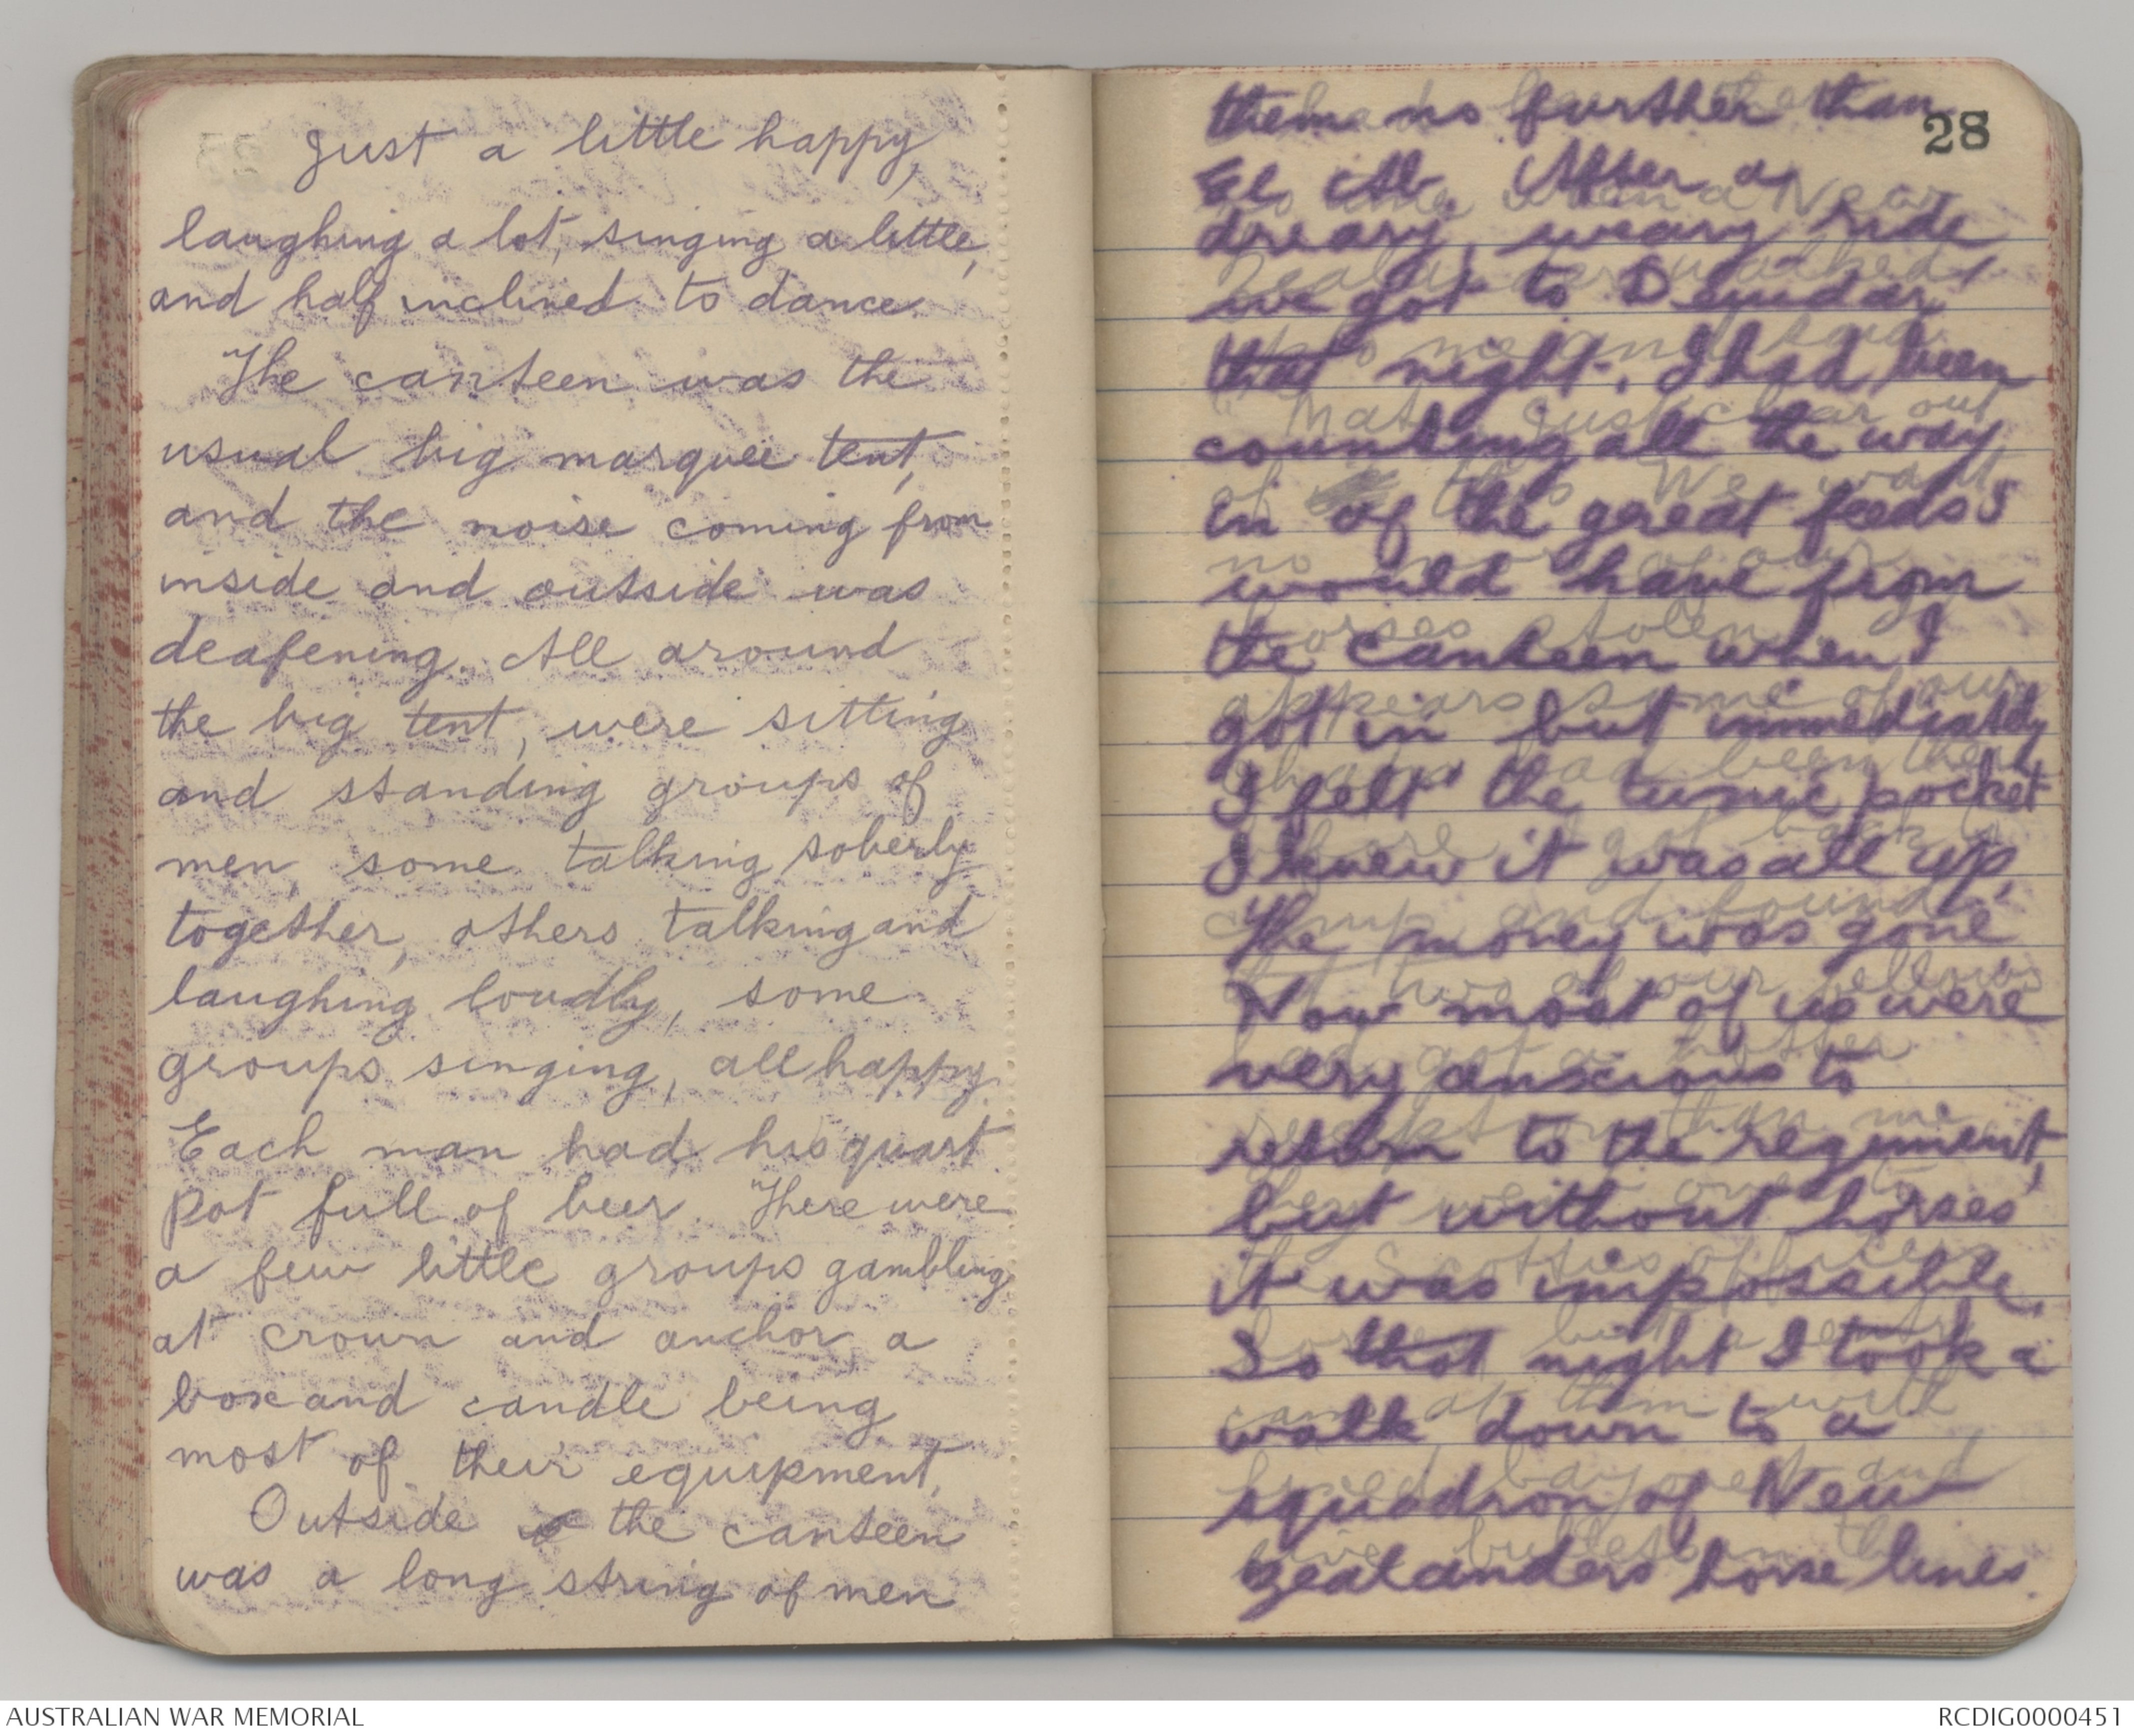 Just a little happy,
laughing a lot, singing a little,
and half inclined to dance.
The canteen was the
usual big marquee tent,
and the noise coming from
inside and outside was
deafening. All around
the big tent, were sitting
and standing groups of
men, some talking soberly
together, others talking and
laughing loudly, some
groups singing, all happy.
Each man had his quart
pot full of beer. There were
a few little groups gambling
at crown and anchor, a
box and candle being
most of their equipment.
Outside the canteen
was a long string of men
28
them no further than
El Ab. After a
dreary, weary ride
we got to Dueidar
that night. I had been
counting all the way
in of the great feeds I
would have from
the canteen when I
got in but immediately
I felt the tunic pocket
I knew it was all up,
The money was gone
Now most of us were
very anxious to
return to the regiment,
but without horses
it was impossible.
So that night I took a
walk down to a
squadron of New
Zealanders horse lines.
AUSTRALIAN WAR MEMORIAL
RCDIG0000451